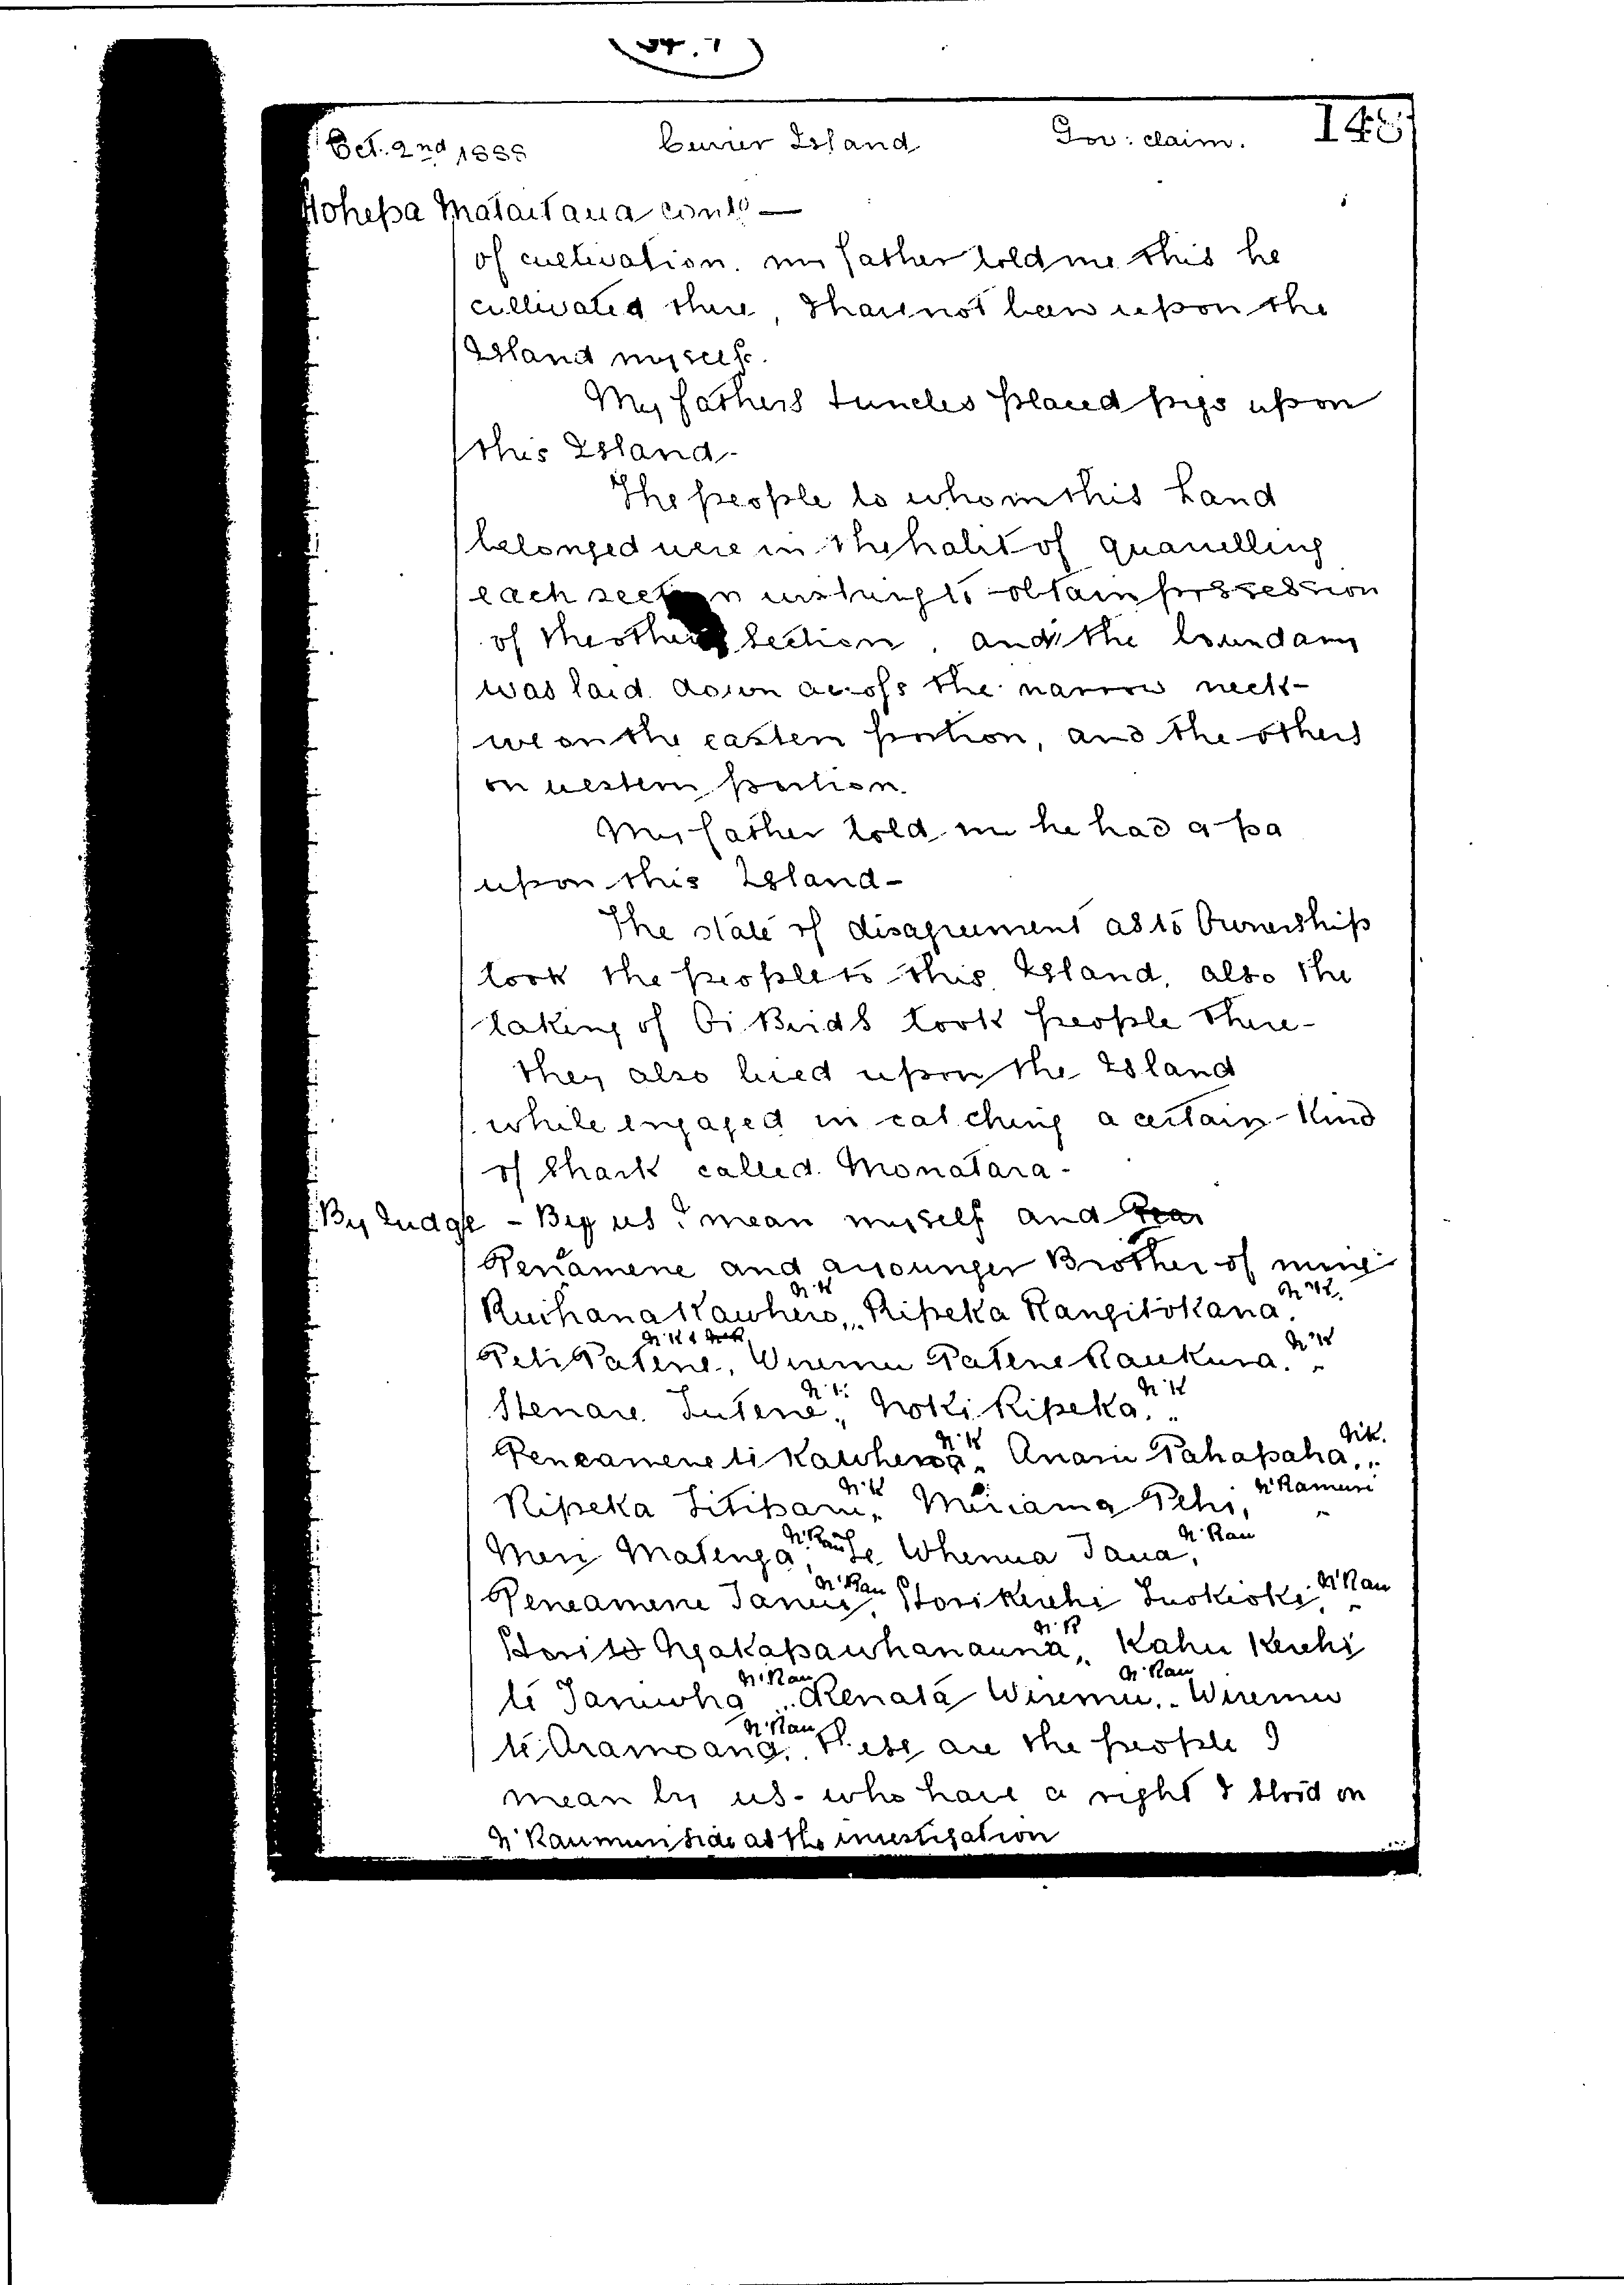 Oct. 2nd 1888 Cuvier Island Gov: claim. 148
Hohepa Mataitaua contd —
of cultivation. my father told me this he
cultivated there, I have not been upon the
Island myself.
My fathers & uncles placed pigs upon
this Island-
The people to whom this Land
belonged were in the habit of quarelling
each section wishing to obtain possession
of the other section, and the boundary
was laid down across the narrow neck-
we on the eastern portion, and the others
on western portion.
My father told me he had a pa
upon this Island-
The state of disagreement as to Ownership
took the people to this Island, also the
taking of Oi Birds took people there-
they also lived upon the Island
while engaged in catching a certain Kind
of Shark called Monatara-
By Judge - By us I mean myself and
Penamene and a younger Brother of mine
Ruihana Kawhero, N'K Ripeka Rangitokana. N'K
Peti Patene, N'K Wiremu Patene Raukura. N'K
Henare Tutene, Noki Ripeka, N'K
Peneamene te Kawheroa N'K Anani Pahapaha, N'K.
Ripeka Titipari, N'K Miriama Pehi, N'Ramuri
Meri Matenga, N'Rau Te Whenua Taua, N'Rau
Peneamene Tanui, N'Rau Horikerehi Tuokioki, N'Rau
Ngakapawhanauna, N'R Kahu Kerehi
te Taniwha N'Rau Renata Wiremu, N'Rau Wiremu
te Aramoana, N'Rau these are the people I
mean by us- who have a right I stood on
N'Raumuri side at the investigation